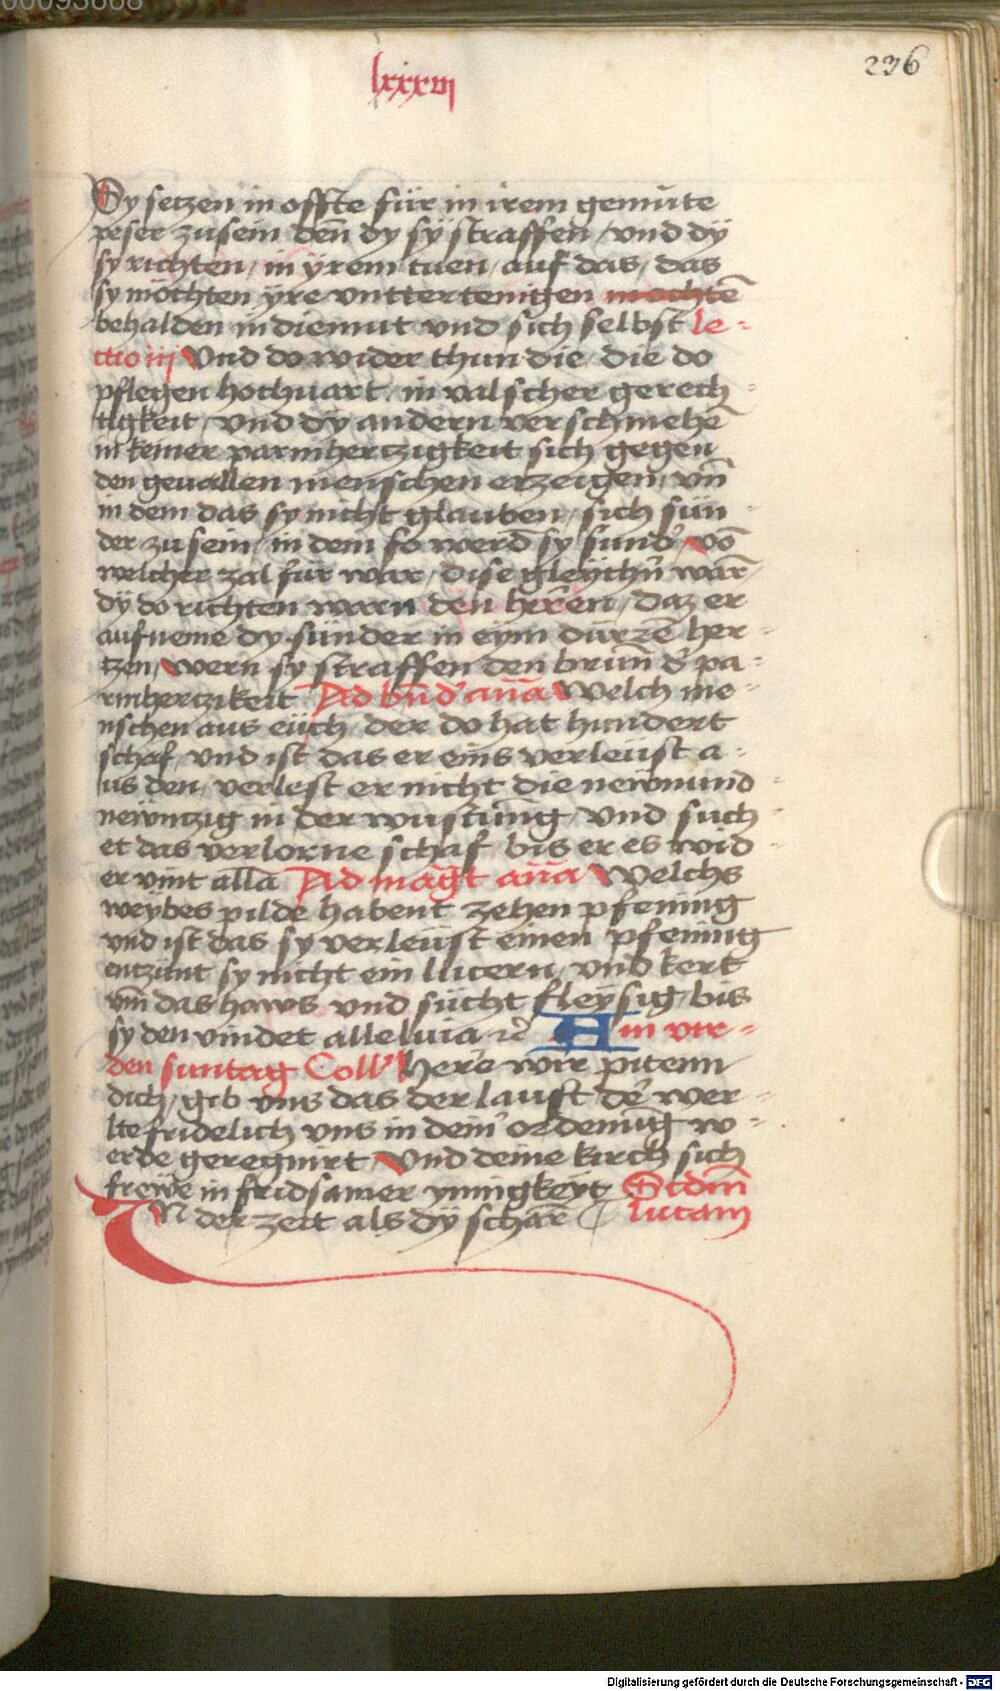 00093668
lxxxvi
236
Sy setzen in offte für in irem gemüte
peser zu sein den̄ dy sÿ straffen / vnd dÿ
sy richten / in ÿrem tuen / auf das / das
sy möchten ÿre vnttertenigen mochtē
behalden in diemut vnd sich selbst le-
ctio iij Vnd do wider thun die / die do
pflegen hochuart / in valscher gerech-
tigkeit / vnd dÿ andern verschmehē
in keiner parmherczigkeit sich gegen
den geuallen menschen erzeigen / vn̄
in dem das sy nicht glauben / sich sün-
der zu sein / in dem so werd̄ sy sünd' vō
welcher zal für war / dise gleÿchn̄ warn̄
dÿ do richten warn den hr̄ren / daz er
aufneme dy sünder in eym dürzē her-
tzen / wern sy straffen den brun̄ d' pa-
rmherczikeit Ad bn̄d' an̄a Welch me-
nschen aus eüch / der do hat hundert
schaf / vnd ist das er eins verleüst a-
us den / verlest er nicht die newnund-
newntzig in der wüstung / vnd such-
et das verlorne schaf / bis er es wid-
er vint alla Ad maḡt an̄a Welchs
weÿbes pilde habent zehen pfening
vnd ist das sy verleüst einen pfennig
entzünt sy nicht ein lucern / vnd kert
vm̄ das haws vnd sücht fleÿsig / bis
sy den vindet alleluia &c̄ Am vir-
den suntag Coll' Here wir pitenn
dich / gib vns das der lauft de' wer-
lte fridelich vns in dein' ordenūg w-
erde geregnirt / Vnd deine kirch sich
freẅe in fridsamer ynnigkeyt Scdm̄
IN der zeit als dÿ scharē lucam
Digitalisierung gefördert durch die Deutsche Forschungsgemeinschaft - DFG